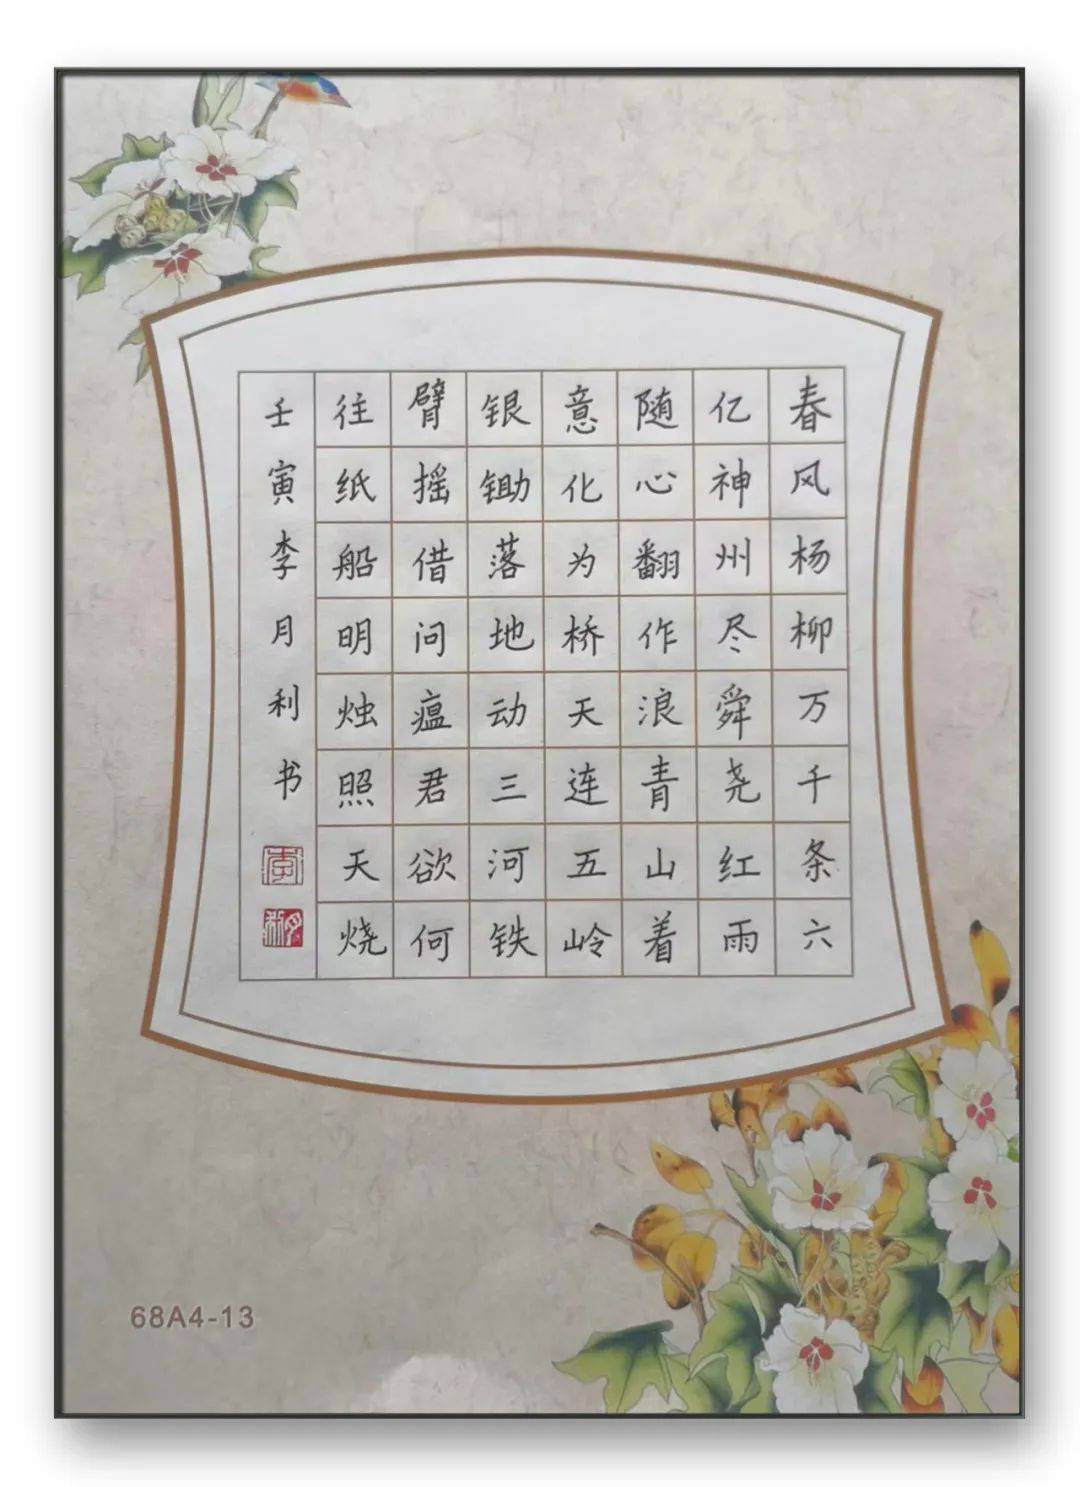 春风杨柳万千条六
亿神州尽舜尧红雨
随心翻作浪青山着
意化为桥天连五岭
银锄落地动三河铁
臂摇借问瘟君欲何
往纸船明烛照天烧
壬寅李月利书
李
月利
68A4-13